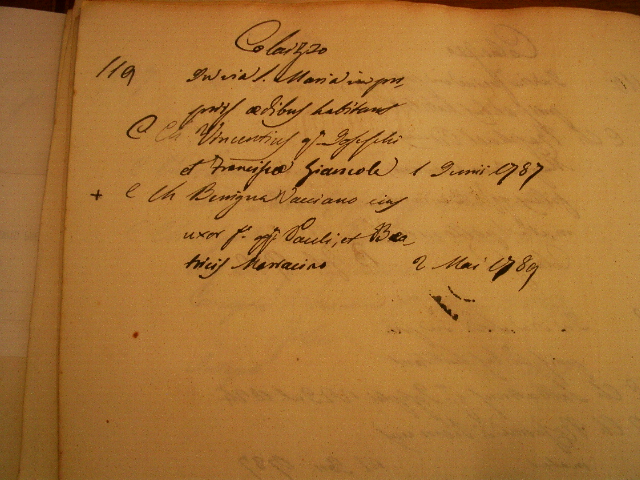 Colaizzo
119 In via S. Maria in pro
prijs ædibus habitans
C Ch Vincentius qm Josephi
et Franciscæ Giancola 1 Junii 1787
+ C Ch Benigna Vacciano eius
uxor f. qm Pauli, et Bea
tricis Marracino 2 Mai 1789